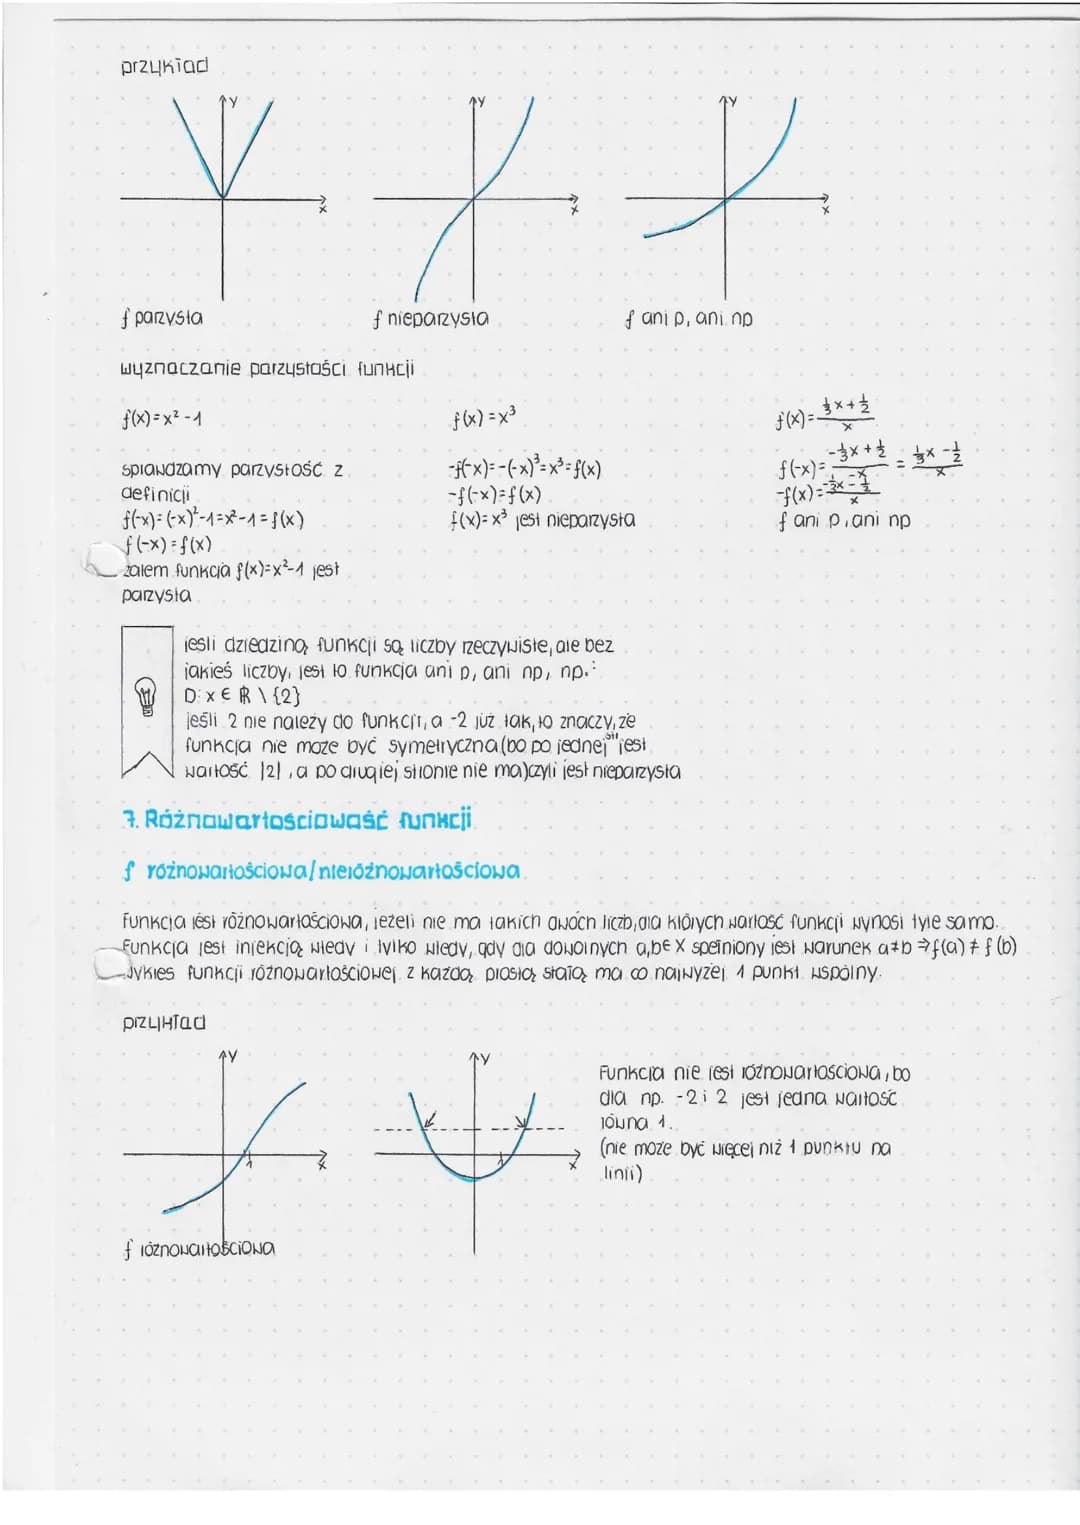 przykład
y
x
y
x
y
x
f parzysta
f nieparzysta
f ani p, ani np
wyznaczanie parzystości funkcji
f(x)=x²-1
f(x)=x³
f(x)=(⅓x+½)/x
sprawdzamy parzystość z
definicji
f(-x)=(-x)²-1=x²-1=f(x)
f(-x)=f(x)
zatem funkcja f(x)=x²-1 jest
parzysta
-f(-x)=-(-x)³=x³=f(x)
-f(-x)=f(x)
f(x)=x³ jest nieparzysta
f(-x)=(-⅓x+½)/-x = (⅓x-½)/x
-f(x)=(-⅓x-½)/x
f ani p, ani np
jeśli dziedziną funkcji są liczby rzeczywiste, ale bez
jakieś liczby, jest to funkcja ani p, ani np, np.:
D: x ∈ ℝ \ {2}
jeśli 2 nie należy do funkcji, a -2 już tak, to znaczy, że
funkcja nie może być symetryczna (bo po jednej str. jest
wartość |2|, a po drugiej stronie nie ma) czyli jest nieparzysta
7. Różnowartościowość funkcji
f różnowartościowa/nieróżnowartościowa
Funkcja jest różnowartościowa, jeżeli nie ma takich dwóch liczb, dla których wartość funkcji wynosi tyle samo.
Funkcja jest injekcją wtedy i tylko wtedy, gdy dla dowolnych a,b∈X spełniony jest warunek a≠b⇒f(a)≠f(b)
Wykres funkcji różnowartościowej z każdą prostą stałą ma co najwyżej 1 punkt wspólny.
przykład
y
x
1
y
x
1
Funkcja nie jest różnowartościowa, bo
dla np. -2 i 2 jest jedna wartość
równa 1.
(nie może być więcej niż 1 punktu na
linii)
f różnowartościowa